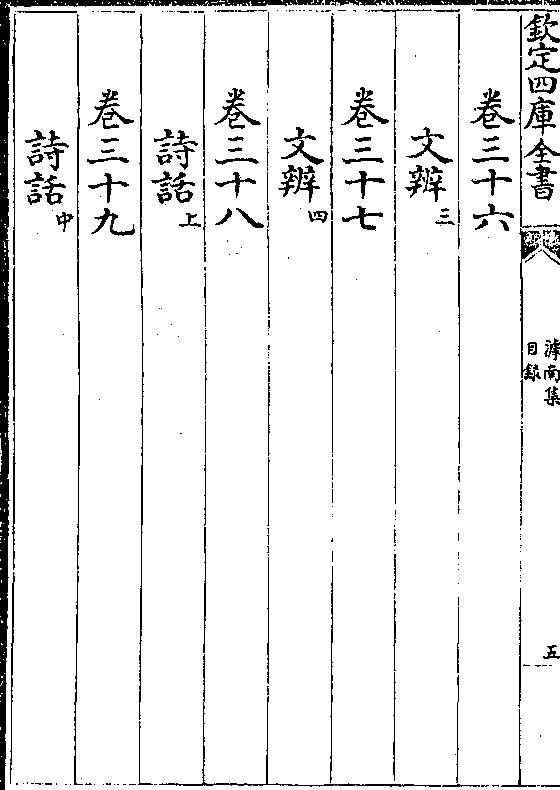 欽定四庫全書
滹南集
目録
五
卷三十六
文辨三
卷三十七
文辨四
卷三十八
詩話上
卷三十九
詩話中